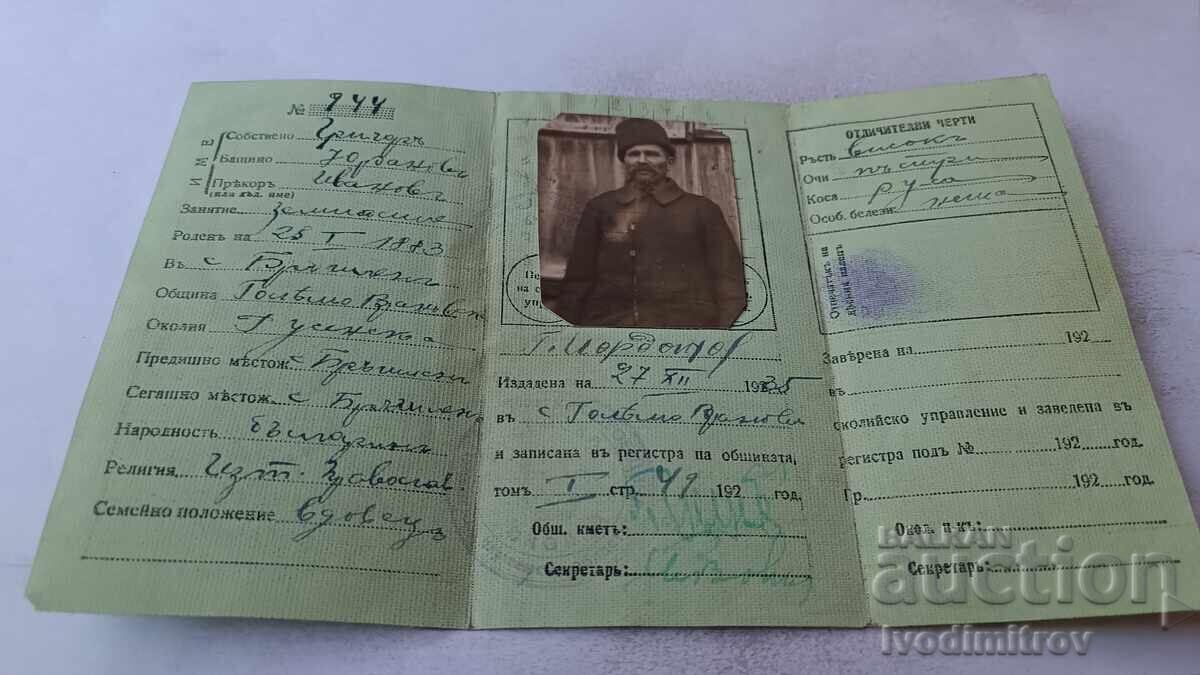 № 944
ИМЕ
Собствено Григоръ
Бащино Юрдановъ
Прѣкоръ Ивановъ
(или хъл. име)
Занятие земледелие
Роденъ на 25 I 1883
Въ с Бръшленъ
Община Голѣмо Враново
Околия Русенска
Предишно мѣстож. с Бръшленъ
Сегашно мѣстож. с Бръшленъ
Народность българинъ
Религия Изт. Православ.
Семейно положение вдовецъ
Издадена на 27 XII 1935
въ с Голѣмо Враново
и записана въ регистра на общината,
томъ I стр. 41 192 год.
Общ. кметъ:
Секретарь:
ОТЛИЧИТЕЛНИ ЧЕРТИ
Ръстъ високъ
Очи пъстри
Коса руса
Особ. белези: нема
Отпечатъкъ на
дѣсния палецъ
Завѣрена на 192
въ
околийско управление и заведена въ
регистра подъ № 192 год.
Гр. 192 год.
Окол. н-къ:
Секретарь:
BALKAN
auction
Ivodimitrov